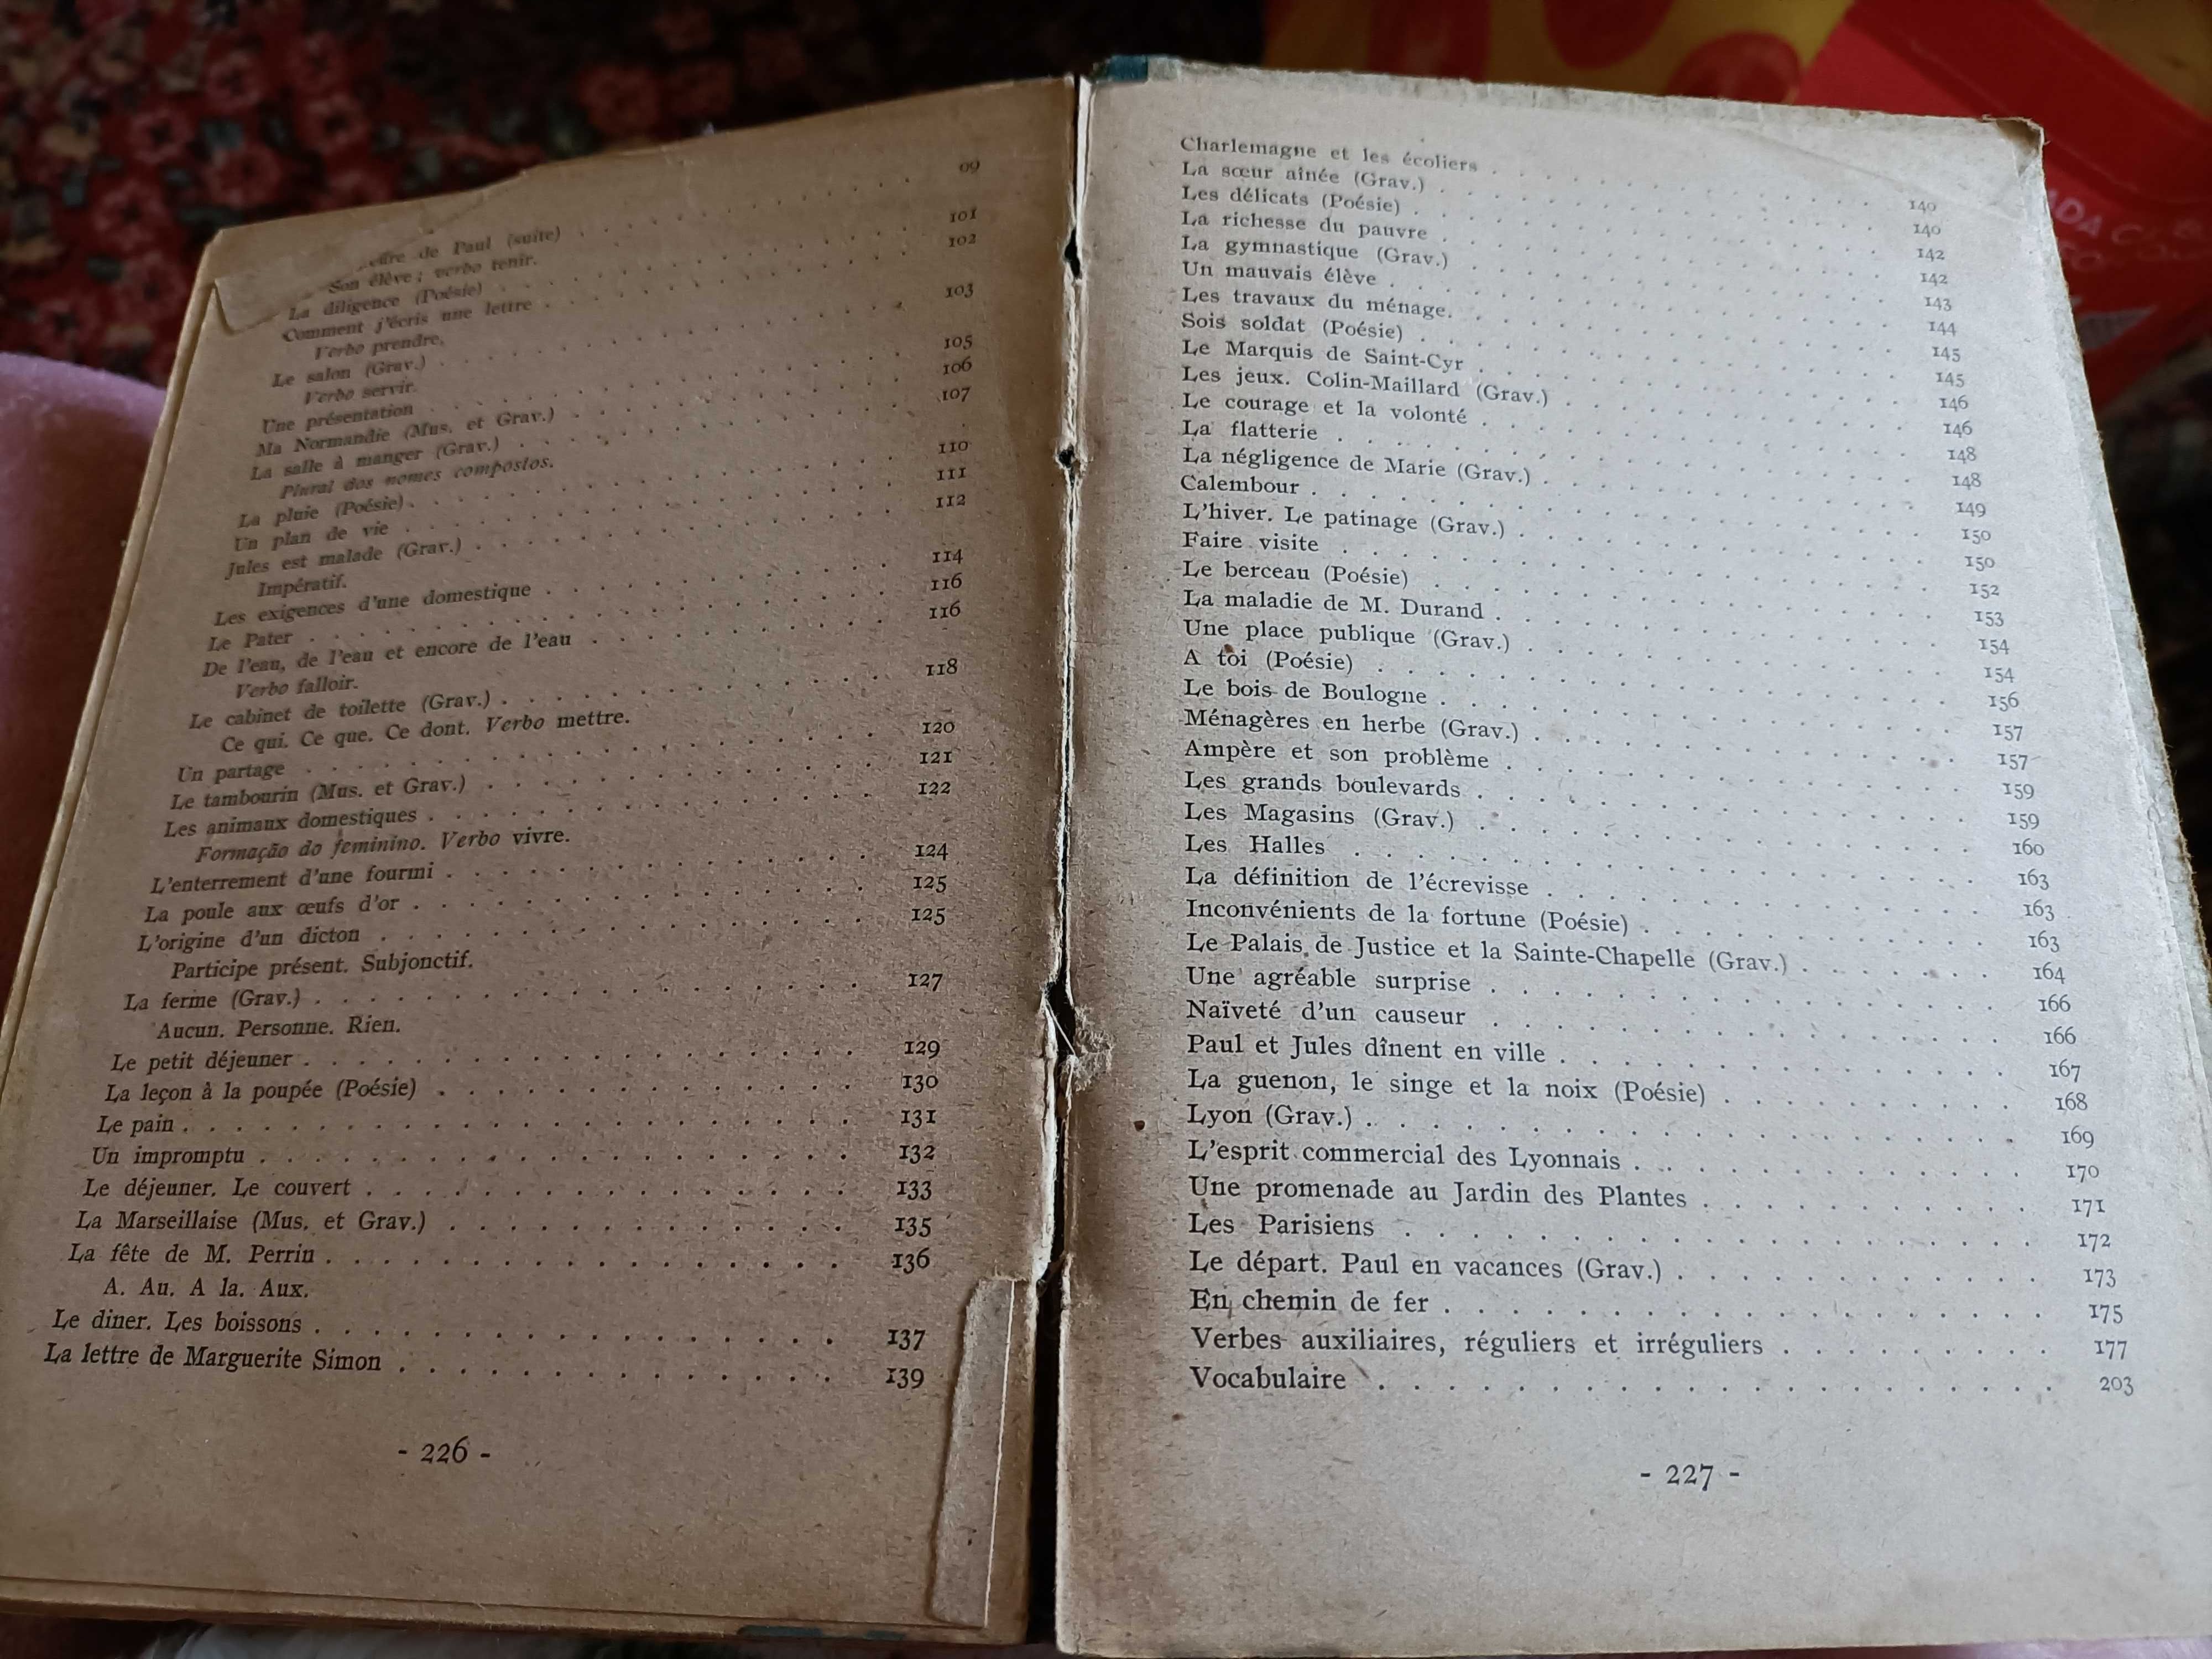 de Paul (suite) . . . 09
Son élève ; verbo tenir.
La diligence (Poésie) . . . 101
Comment j'écris une lettre . . . 102
Verbo prendre.
Le salon (Grav.) . . . 103
Verbo servir.
Une présentation . . . 105
Ma Normandie (Mus. et Grav.) . . . 106
La salle à manger (Grav.) . . . 107
Plural dos nomes compostos.
La pluie (Poésie) . . . 110
Un plan de vie . . . 111
Jules est malade (Grav.) . . . 112
Impératif.
Les exigences d'une domestique . . . 114
Le Pater . . . 116
De l'eau, de l'eau et encore de l'eau . . . 116
Verbo falloir.
Le cabinet de toilette (Grav.) . . . 118
Ce qui. Ce que. Ce dont. Verbo mettre.
Un partage . . . 120
Le tambourin (Mus. et Grav.) . . . 121
Les animaux domestiques . . . 122
Formação do feminino. Verbo vivre.
L'enterrement d'une fourmi . . . 124
La poule aux œufs d'or . . . 125
L'origine d'un dicton . . . 125
Participe présent. Subjonctif.
La ferme (Grav.) . . . 127
Aucun. Personne. Rien.
Le petit déjeuner . . . 129
La leçon à la poupée (Poésie) . . . 130
Le pain . . . 131
Un impromptu . . . 132
Le déjeuner. Le couvert . . . 133
La Marseillaise (Mus. et Grav.) . . . 135
La fête de M. Perrin . . . 136
A. Au. A la. Aux.
Le diner. Les boissons . . . 137
La lettre de Marguerite Simon . . . 139
- 226 -
Charlemagne et les écoliers . . . 140
La sœur aînée (Grav.) . . . 140
Les délicats (Poésie) . . . 142
La richesse du pauvre . . . 142
La gymnastique (Grav.) . . . 143
Un mauvais élève . . . 144
Les travaux du ménage. . . . 145
Sois soldat (Poésie) . . . 145
Le Marquis de Saint-Cyr . . . 146
Les jeux. Colin-Maillard (Grav.) . . . 146
Le courage et la volonté . . . 148
La flatterie . . . 148
La négligence de Marie (Grav.) . . . 149
Calembour . . . 150
L'hiver. Le patinage (Grav.) . . . 150
Faire visite . . . 152
Le berceau (Poésie) . . . 153
La maladie de M. Durand . . . 154
Une place publique (Grav.) . . . 154
A toi (Poésie) . . . 156
Le bois de Boulogne . . . 157
Ménagères en herbe (Grav.) . . . 157
Ampère et son problème . . . 159
Les grands boulevards . . . 159
Les Magasins (Grav.) . . . 160
Les Halles . . . 163
La définition de l'écrevisse . . . 163
Inconvénients de la fortune (Poésie) . . . 163
Le Palais de Justice et la Sainte-Chapelle (Grav.) . . . 164
Une agréable surprise . . . 166
Naïveté d'un causeur . . . 166
Paul et Jules dînent en ville . . . 167
La guenon, le singe et la noix (Poésie) . . . 168
Lyon (Grav.) . . . 169
L'esprit commercial des Lyonnais . . . 170
Une promenade au Jardin des Plantes . . . 171
Les Parisiens . . . 172
Le départ. Paul en vacances (Grav.) . . . 173
En chemin de fer . . . 175
Verbes auxiliaires, réguliers et irréguliers . . . 177
Vocabulaire . . . 203
- 227 -